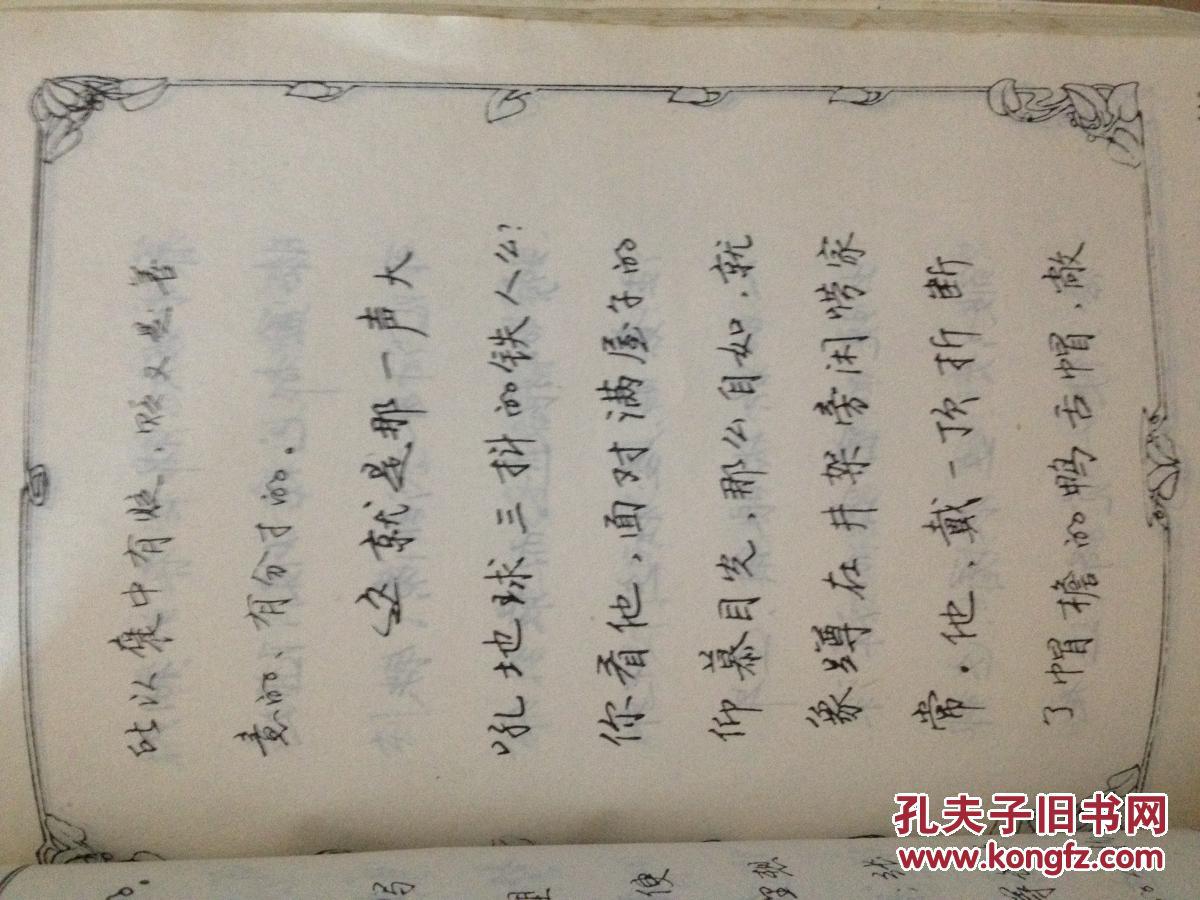 所以褒中有贬,贬又是善
意的、有分寸的.
这就是那一声大
吼地球三抖的铁人么?
你看他,面对满屋子的
仰慕目光,那么自如,就
象蹲在井架旁闲唠家
常.他,戴一顶折断
了帽檐的鸭舌帽,敞
使
孔夫子旧书网
www.kongfz.com